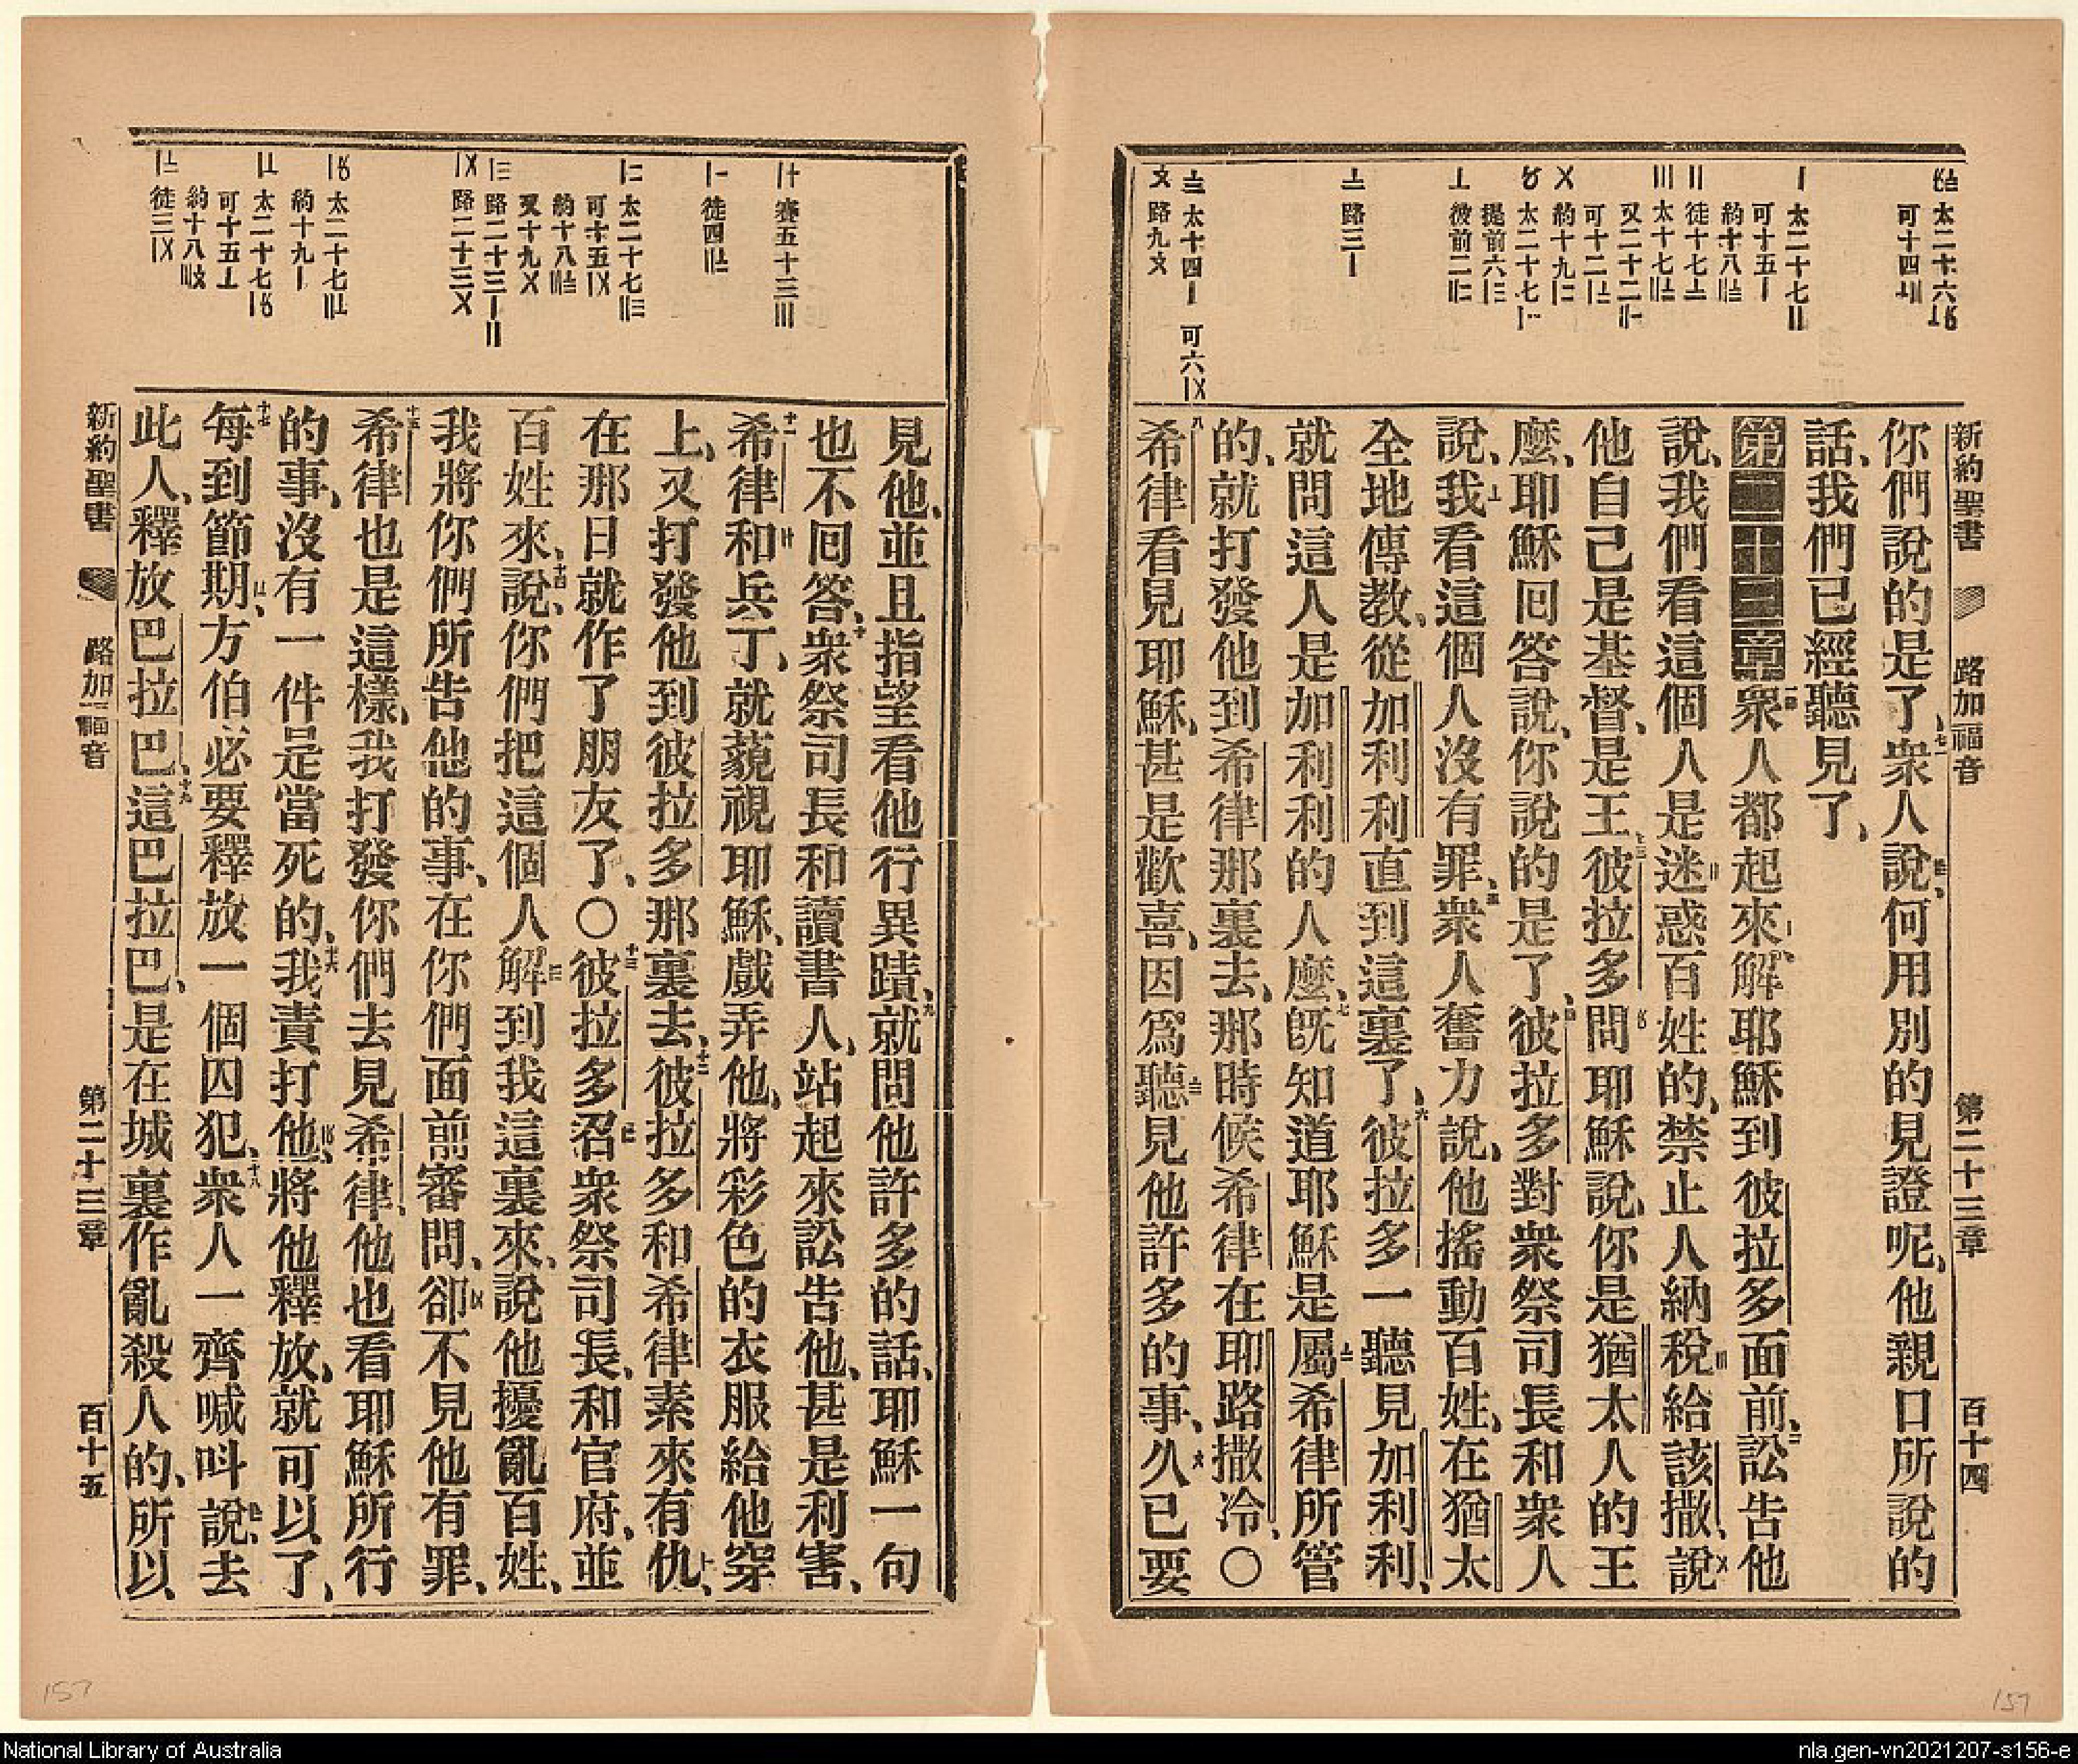 新約聖書 路加福音 第二十三章 百十四
太二十六
可十四
太二十七〢
可十五〡
約十八
徒十七〧
太十七
又二十二
可十二
約十九
太二十七
提前六
彼前二
路三〡
太十四〡 可六〡〤
路九〩
你們說的是了、衆人說、何用別的見證呢、他親口所說的
話、我們已經聽見了、
第二十三章衆人都起來、解耶穌到彼拉多面前、訟告他
說、我們看這個人是迷惑百姓的、禁止人納稅給該撒、說
他自己是基督、是王、彼拉多問耶穌說、你是猶太人的王
麼、耶穌回答說、你說的是了、彼拉多對衆祭司長和衆人
說、我看這個人沒有罪、衆人奮力說、他搖動百姓、在猶太
全地傳教、從加利利直到這裏了、彼拉多一聽見加利利、
就問這人是加利利的人麼、旣知道耶穌是屬希律所管
的、就打發他到希律那裏去、那時候希律在耶路撒冷、〇
希律看見耶穌、甚是歡喜、因爲聽見他許多的事、久已要
賽五十三〣
徒四
太二十七
可十五〡〤
約十八
又十九〤
路二十三〡〢
路二十三〤
太二十七
約十九〡
太二十七
可十五〦
約十八
徒三〡〤
見他、並且指望看他行異蹟、就問他許多的話、耶穌一句
也不回答、衆祭司長和讀書人、站起來訟告他、甚是利害、
希律和兵丁、就藐視耶穌、戲弄他、將彩色的衣服給他穿
上、又打發他到彼拉多那裏去、彼拉多和希律素來有仇、
在那日就作了朋友了、〇彼拉多召衆祭司長、和官府、並
百姓來、說、你們把這個人解到我這裏來、說他擾亂百姓、
我將你們所告他的事、在你們面前審問、卻不見他有罪、
希律也是這樣、我打發你們去見希律、他也看耶穌所行
的事、沒有一件是當死的、我責打他、將他釋放、就可以了、
每到節期、方伯必要釋放一個囚犯、衆人一齊喊叫說、去
此人、釋放巴拉巴、這巴拉巴、是在城裏作亂殺人的、所以
新約聖書 路加福音 第二十三章 百十五
157
157
National Library of Australia
nla.gen-vn2021207-s156-e